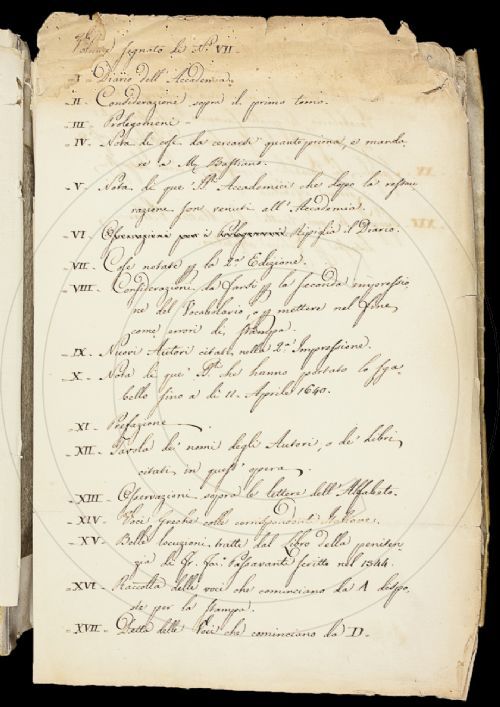 Volume segnato di N.º VII.
- I - Diario dell' Accademia.
- II - Considerazione sopra il primo tomo.
- III Prolegomeni -
- IV - Nota di cose da cercarsi quanto prima, e manda-
re a M. Bastiano.
- V - Nota di que' SS.ri Accademici che dopo la restau-
razione son venuti all' Accademia.
- VI - Osservazioni per i prolegomeni Ripiglia il Diario.
- VII - Cose notate p la 2.a Edizione.
- VIII - Considerazione da farsi p la seconda impressio-
ne del Vocabolario, o p mettere nel fine
come errori di stampa.
- IX - Nuovi Autori citati nella 2.a Impressione.
- X - Nota di que' SS.ri che hanno portato lo sga-
bello fino a dì 11. Aprile 1640.
- XI - Prefazione.
- XII - Tavola de' nomi degli Autori, o de' Libri
citati in quest' opera.
- XIII - Osservazione sopra le lettere dell' Alfabeto.
- XIV - Voci Greche colle corrispondenti Italiane.
- XV - Belle locuzioni tratte dal Libro della peniten-
zia di Fr. Ja. Passavanti scritto nel 1344.
- XVI - Raccolta delle voci che cominciano da A dispo-
ste per la stampa.
- XVII - Detta delle Voci che cominciano da D -